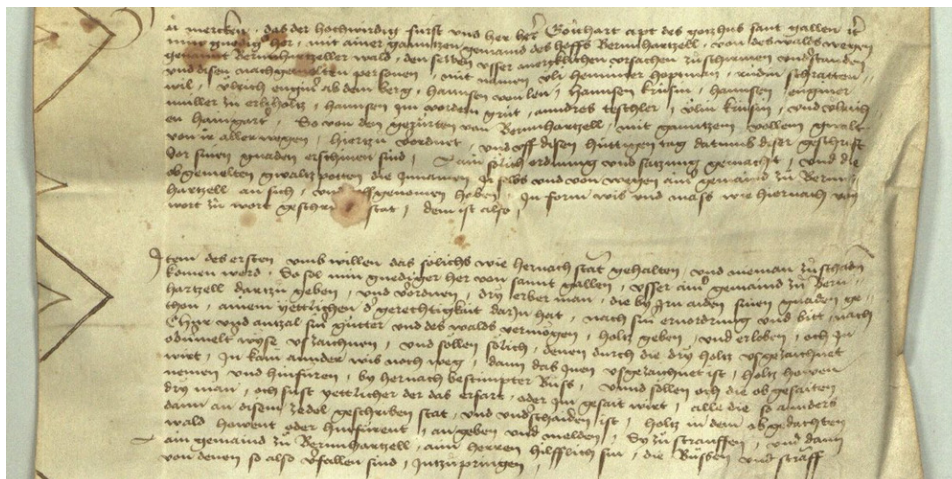 zů mercken, das der hochwirdig fürst und her her Götzhart apt des gotzhus sant gallen
min gnedig her, mit ainer gantzen gemaind des hoffs Bernhartzell, von des walds wegen
genant Bernhartzeller wald, den selben usser mercklichen ursachen zů schirmen und
und disen nachgemelten personen, mit namen Uli hopman, Rudin schratten
wil, Ulrich ab dem berg, hannsen von len, Hannsen krüsin, hannsen
müller zů erlyholtz, hannsen im vordern grüt, andres teschler, Ulin krüsin, und Ulrich
en haingart, So von den gezürten von Bernhartzell, mit gantzem vollem gwalt
von ir aller wegen, hierzů verordnet, und uff disen hüttigen tag datumb diser geschrift
vor sinen gnaden erschinen sind, ain sölich ordnung und satzung gemacht, und die
obgemelten gwaltzpotten die in namen ir selbs und von wegen ainer gemaind zů Bern
hartzell an sich, und uff genomen haben, In form wis und mass wie hiernach von
wort zů wort geschriben stat, dem ist also,
Item des ersten umb willen das sölichs wie hernach stat gehalten, und nieman zů schaden
komen werd, So sol min gnediger her von sannt gallen, usser ainer gemaind zů Bern
hartzell darzů geben, und verordnen, dry erber man, die by irn aiden sinen gnaden ge
thon, ainem yettlichen der gerechtigkait darin hat, nach sin ernordrung und bitt, nach
und antzal sin gütter und des walds vermögen, holtz geben, und erloben, och in
wyse uszaichnen, und sollen sölich, denen durch die dry holtz usgezaichnet
wirt, In kain annder wis noch weg, dann das inen usgezaichnet ist, holtz howen
nemen und hinfüren, by hernach bestimpter Büss, unnd sollen och die obgesaiten
dry man, och sust yettlicher der das erfart, oder im gesait wirt, alle die so annders
dann an disem zedel geschriben stat, und underschaiden ist, holtz in dem obgedachten
wald howent oder hinfürent, angeben und melden, Sy zů strauffen, und dann
ain gemaind zů Bernhartzell, aim herren hilfflich sin, die Büssen und straff
von denen so also verfallen sind, Intzupringen,